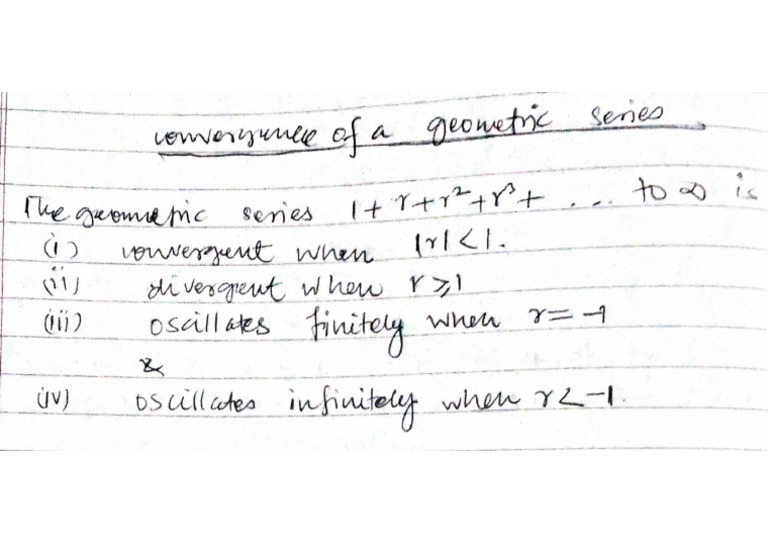 convergence of a geometric series
The geometric series 1 + r + r² + r³ + ... to ∞ is
(i) convergent when |r| < 1.
(ii) divergent when r ⩾ 1
(iii) oscillates finitely when r = -1
&
(iv) oscillates infinitely when r < -1.